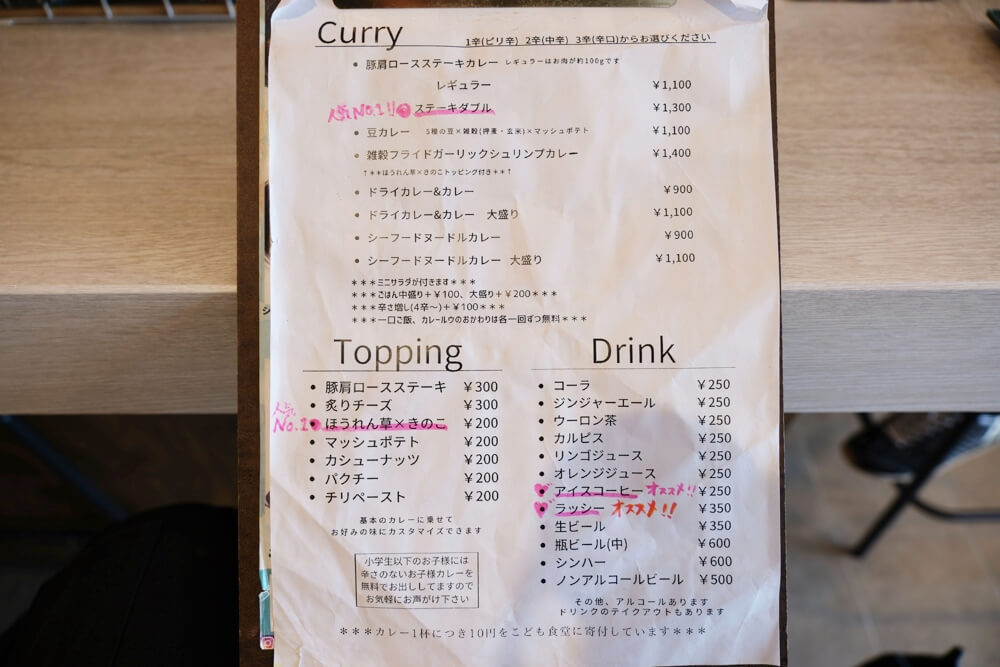 Curry 1辛(ピリ辛) 2辛(中辛) 3辛(辛口)からお選びください
• 豚肩ロースステーキカレー レギュラーはお肉が約100gです
レギュラー ¥1,100
人気No.1!! ステーキダブル ¥1,300
• 豆カレー 5種の豆×雑穀(押麦・玄米)×マッシュポテト ¥1,100
• 雑穀フライドガーリックシュリンプカレー ¥1,400
↑**ほうれん草×きのこトッピング付き**↑
• ドライカレー&カレー ¥900
• ドライカレー&カレー 大盛り ¥1,100
• シーフードヌードルカレー ¥900
• シーフードヌードルカレー 大盛り ¥1,100
***ミニサラダが付きます***
***ごはん中盛り+¥100、大盛り+¥200***
***辛さ増し(4辛〜)+¥100***
***一口ご飯、カレールウのおかわりは各一回ずつ無料***
Topping
• 豚肩ロースステーキ ¥300
• 炙りチーズ ¥300
人気No.1 • ほうれん草×きのこ ¥200
• マッシュポテト ¥200
• カシューナッツ ¥200
• パクチー ¥200
• チリペースト ¥200
基本のカレーに乗せて
お好みの味にカスタマイズできます
小学生以下のお子様には
辛さのないお子様カレーを
無料でお出ししてますので
お気軽にお声がけ下さい
Drink
• コーラ ¥250
• ジンジャーエール ¥250
• ウーロン茶 ¥250
• カルピス ¥250
• リンゴジュース ¥250
• オレンジジュース ¥250
• アイスコーヒー オススメ!! ¥250
• ラッシー オススメ!! ¥350
• 生ビール ¥350
• 瓶ビール(中) ¥600
• シンハー ¥600
• ノンアルコールビール ¥500
その他、アルコールあります
ドリンクのテイクアウトもあります
***カレー1杯につき10円をこども食堂に寄付しています***